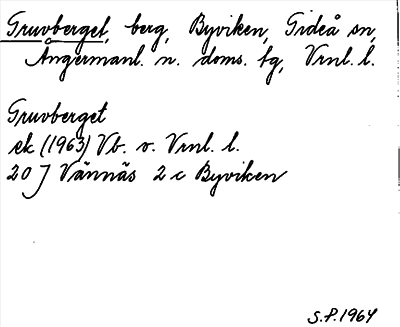 Gruvberget, berg, Byviken, Gideå sn,
Ångermanl. n. doms. tg, Vrnl. l.
Gruvberget
ek (1963) Vb. o. Vrnl. l.
20 J Vännäs 2 c Byviken
S.P. 1964